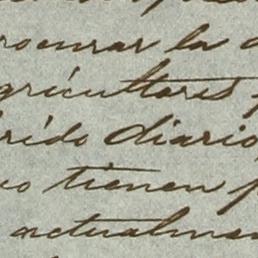 rocurar la
agricultores
rido diario,
tienen
actualmen